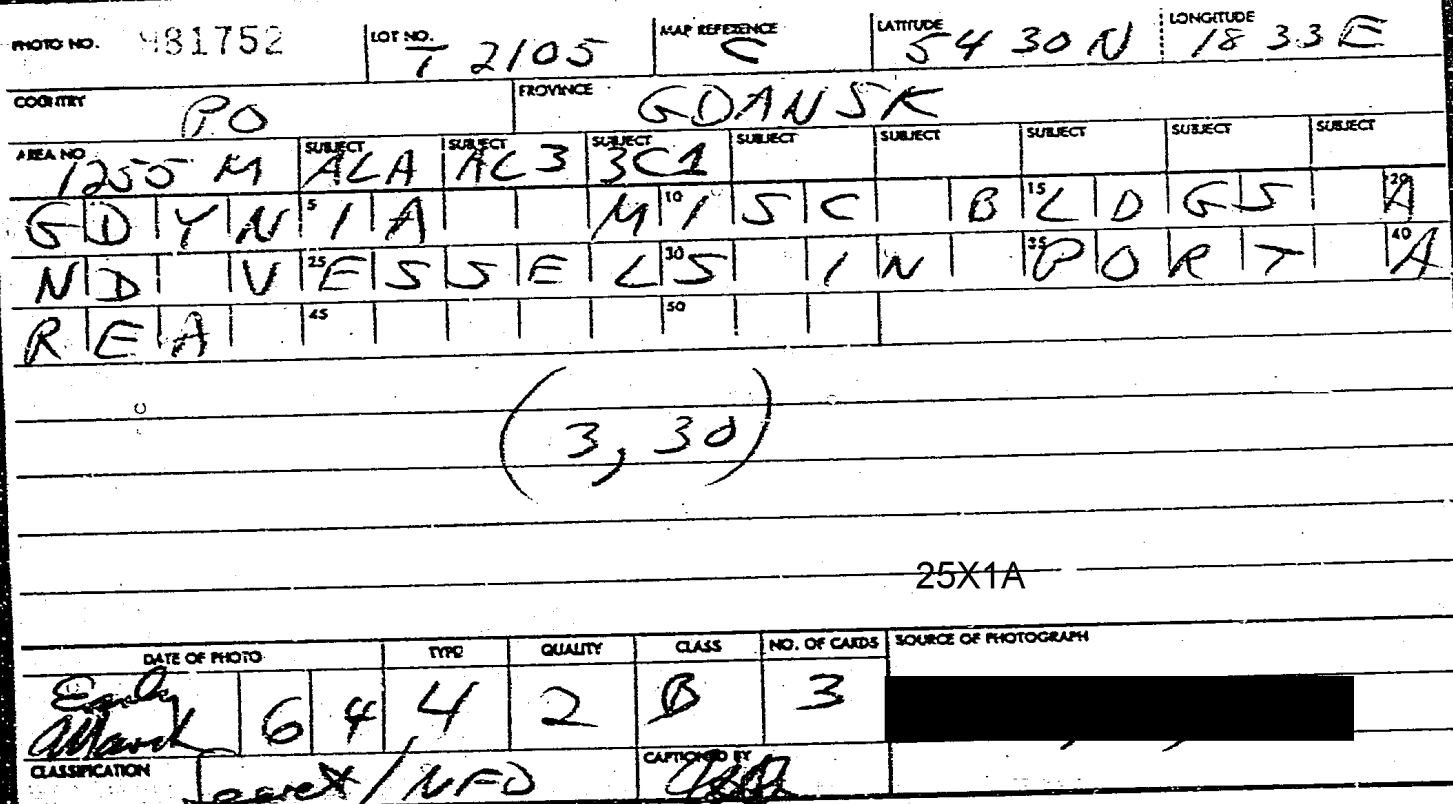 PHOTO NO. 981752 LOT NO. T 2105 MAP REFERENCE C LATITUDE 54 30 N LONGITUDE 18 33 E
COUNTRY PO PROVINCE GDANSK
AREA NO 1255 M SUBJECT ALA SUBJECT AC3 SUBJECT 3C1 SUBJECT SUBJECT SUBJECT SUBJECT SUBJECT
GDYNIA MISC BLDGS A
5 10 15 20
ND VESSELS IN PORT A
25 30 35 40
REA
45 50
(3, 30)
25X1A
DATE OF PHOTO TYPE QUALITY CLASS NO. OF CARDS SOURCE OF PHOTOGRAPH
Early March 6 4 4 2 B 3
CLASSIFICATION Secret / NFD CAPTIONED BY